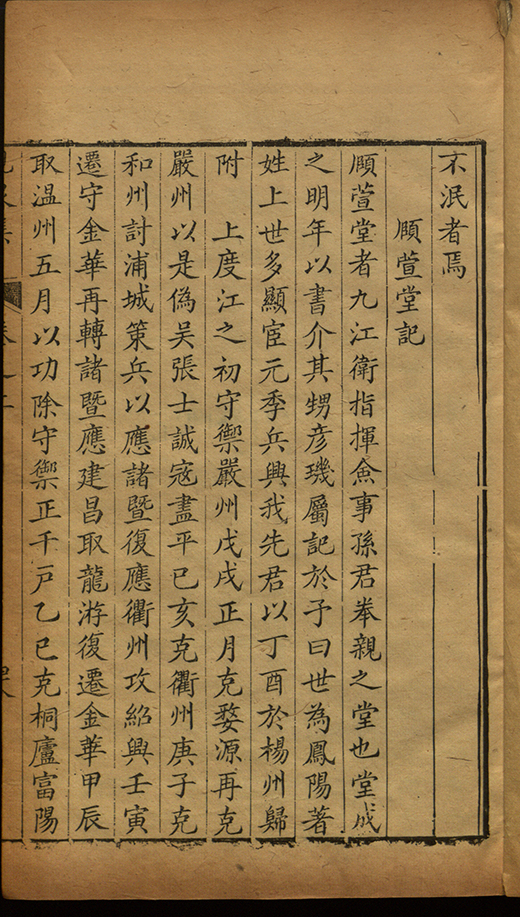 不泯者焉
頋萱堂記
頋萱堂者九江衛指揮僉事孫君奉親之堂也堂成
之明年以書介其甥彦璣屬記於予曰世為鳳陽著
姓上世多顯宦元季兵興我先君以丁酉於楊州歸
附　上度江之初守禦嚴州戊戌正月克婺源再克
嚴州以是偽吴張士誠寇盡平已亥克衢州庚子克
和州討浦城策兵以應諸暨復應衢州攻紹興壬寅
遷守金華再轉諸暨應建昌取龍游復遷金華甲辰
取温州五月以功除守禦正千戸乙巳克桐廬富陽